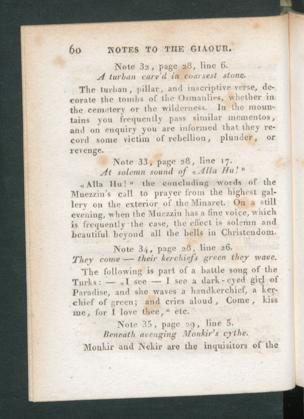 60 NOTES TO THE GIAOUR.
Note 32, page 28, line 6.
A turban carv'd in coarsest stone.
The turban, pillar, and inscriptive verse, de-
corate the tombs of the Osmanlies, whether in
the cemetery or the wilderness. In the moun-
tains you frequently pass similar mementos,
and on enquiry you are informed that they re-
cord some victim of rebellion, plunder, or
revenge.
Note 33, page 28, line 17.
At solemn sound of «Alla Hu!"
«Alla Hu!" the concluding words of the
Muezzin's call to prayer from the highest gal-
lery on the exterior of the Minaret. On a still
evening, when the Muezzin has a fine voice, which
is frequently the case, the effect is solemn and
beautiful beyond all the bells in Christendom.
Note 34, page 28, line 26.
They come — their kerchiefs green they wave.
The following is part of a battle song of the
Turks: — „I see — I see a dark-eyed girl of
Paradise, and she waves a handkerchief, a ker-
chief of green; and cries aloud, Come, kiss
me, for I love thee," etc.
Note 35, page 29, line 5.
Beneath avenging Monkir's cythe.
Monkir and Nekir are the inquisitors of the